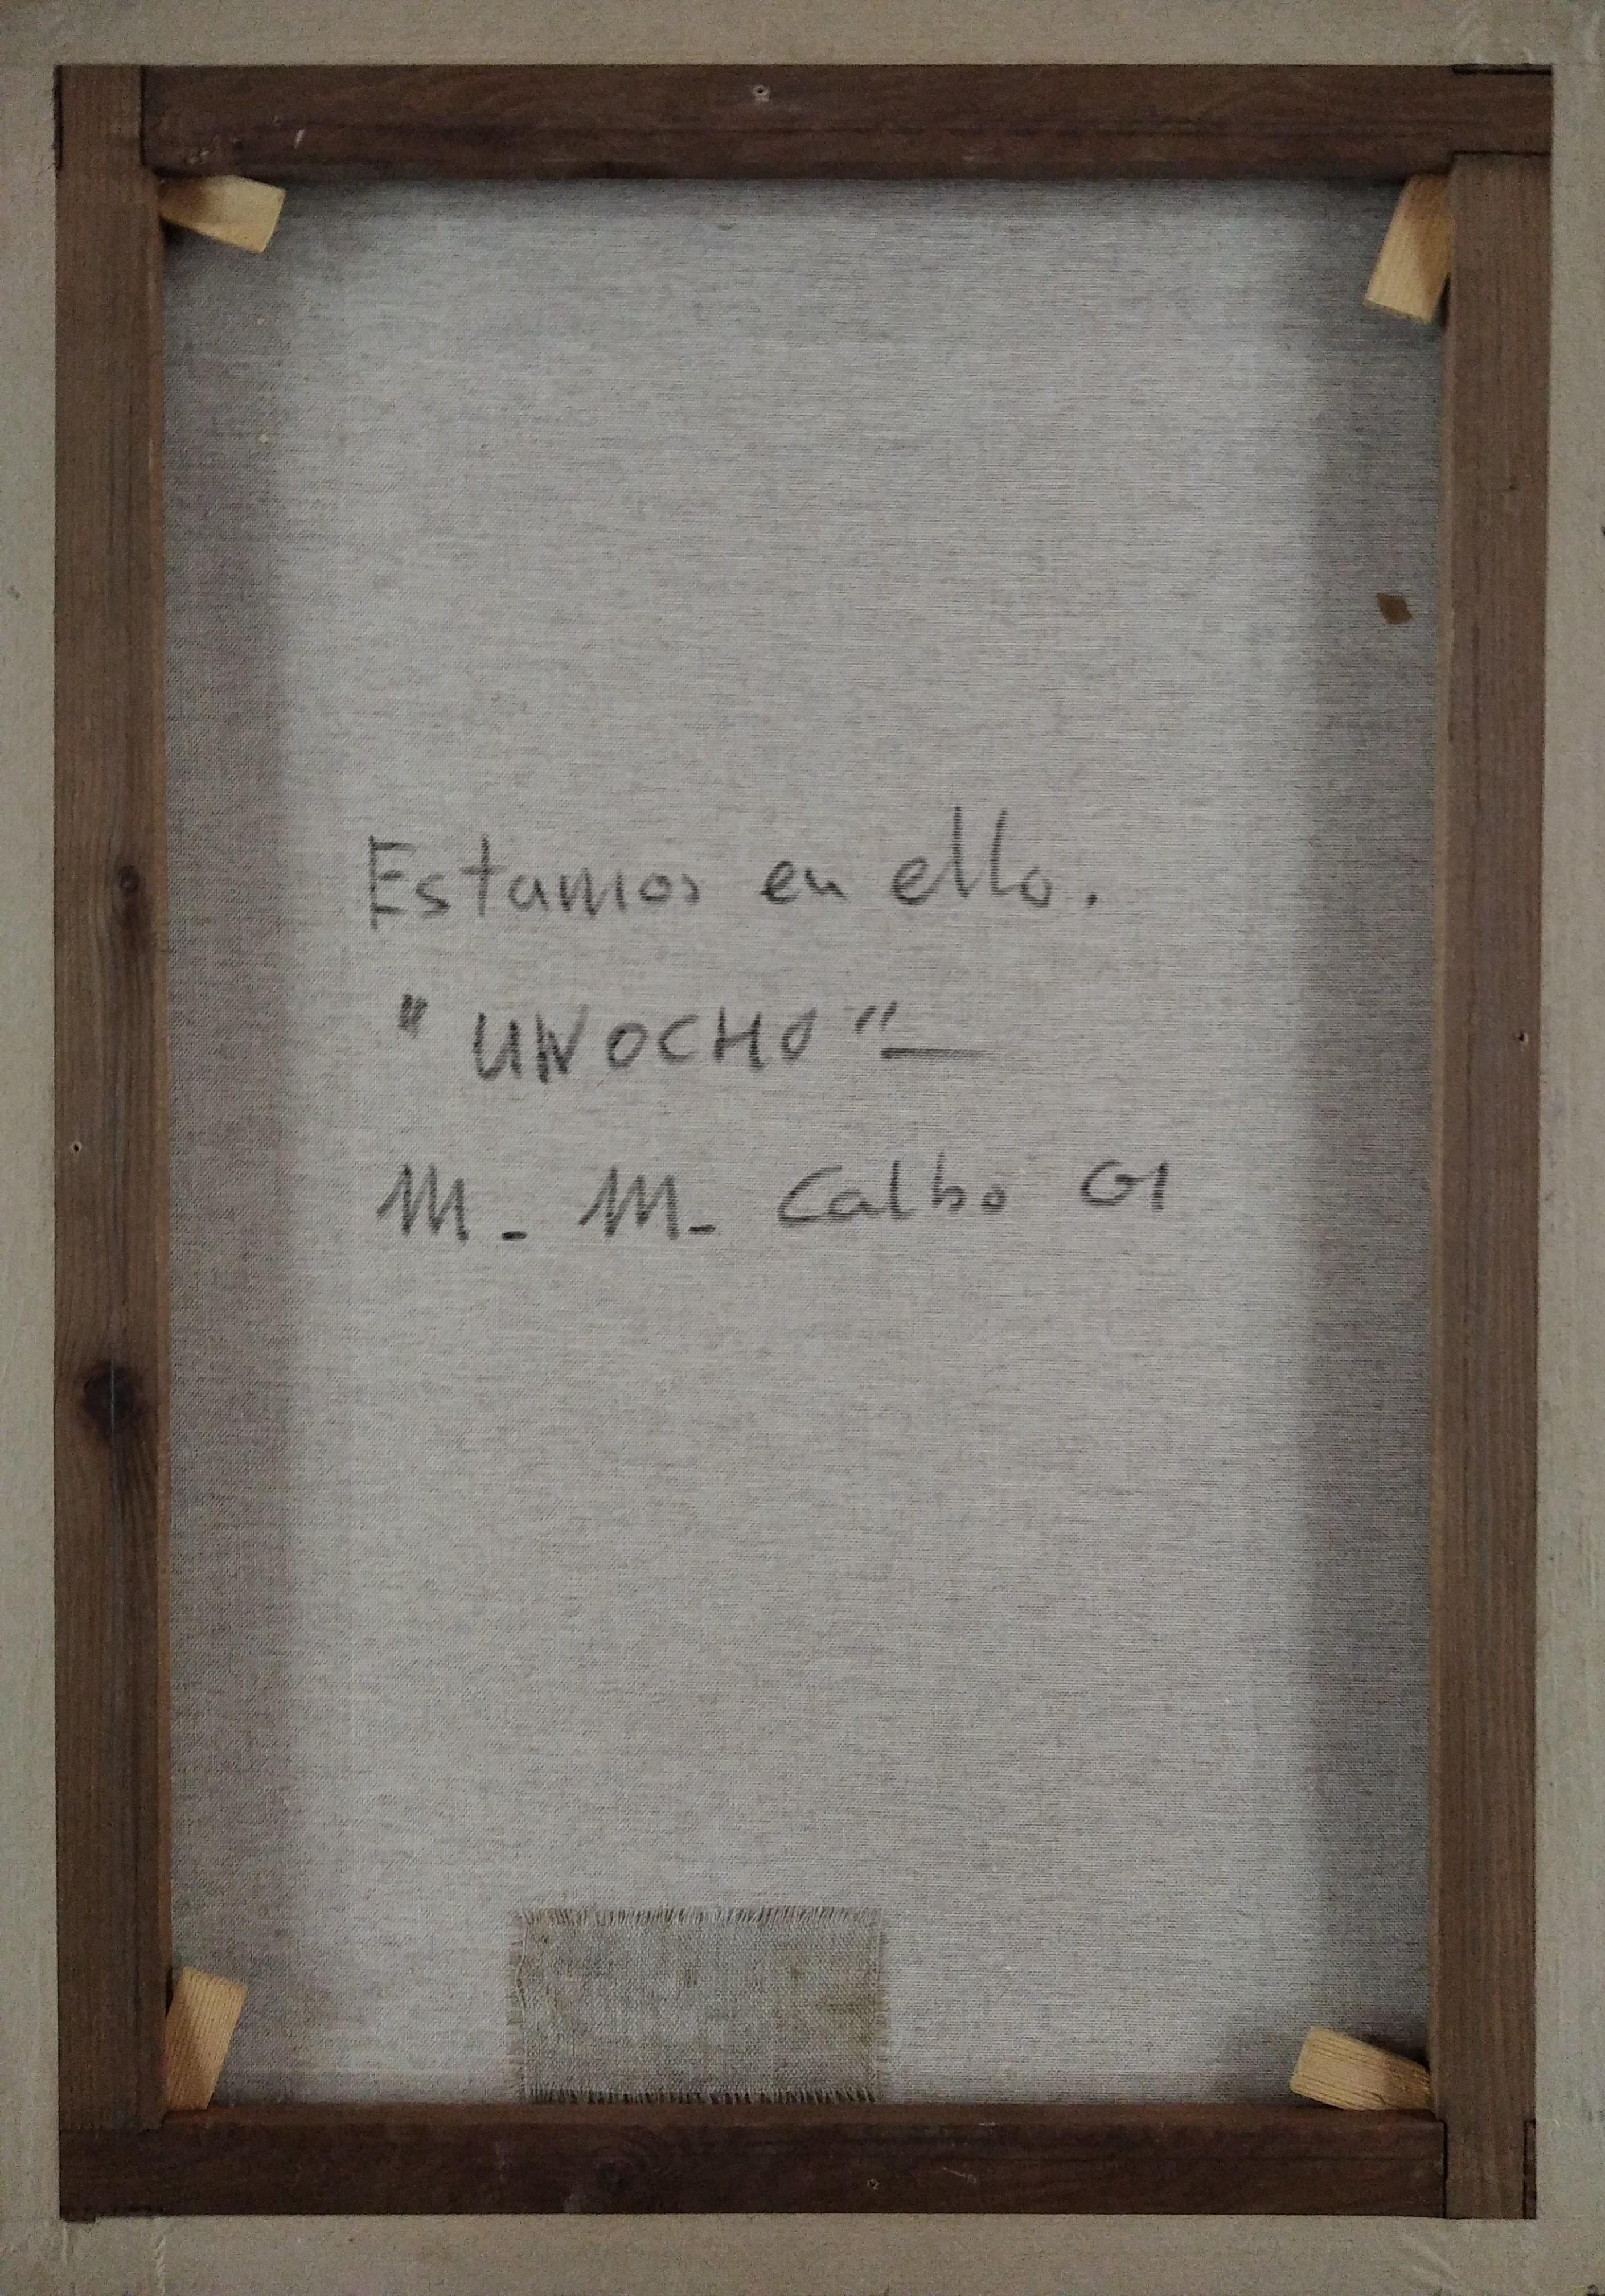 Estamos en ello.
"UNOCHO"—
M. M. Calbo GI